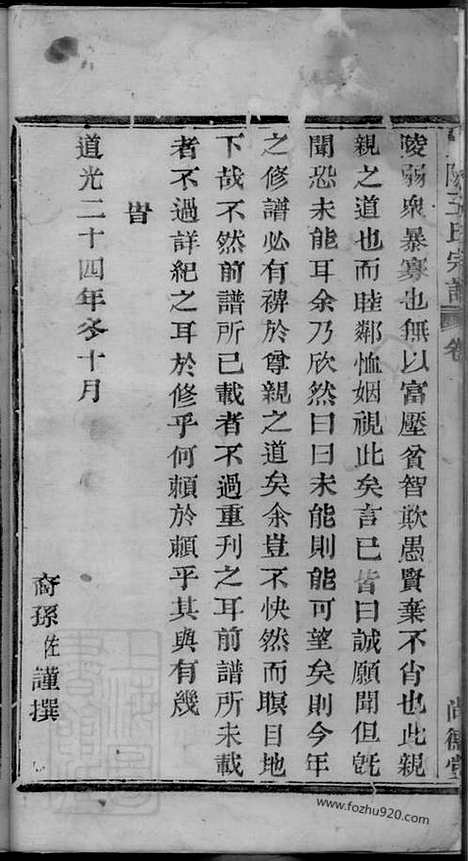 陵弱衆暴寡也無以富壓貧智欺愚賢棄不肖也此親
親之道也而睦鄰恤姻視此矣言已皆曰誠願聞但旣
聞恐未能耳余乃欣然曰曰未能則能可望矣則今年
之修譜必有裨於尊親之道矣余豈不快然而瞑目地
下哉不然前譜所已載者不過重刊之耳前譜所未載
者不過詳紀之耳於修乎何賴於賴乎其與有幾
旹
道光二十四年冬十月
裔孫佐謹撰
氏宗譜
卷
尚德堂
www.fozhu920.com